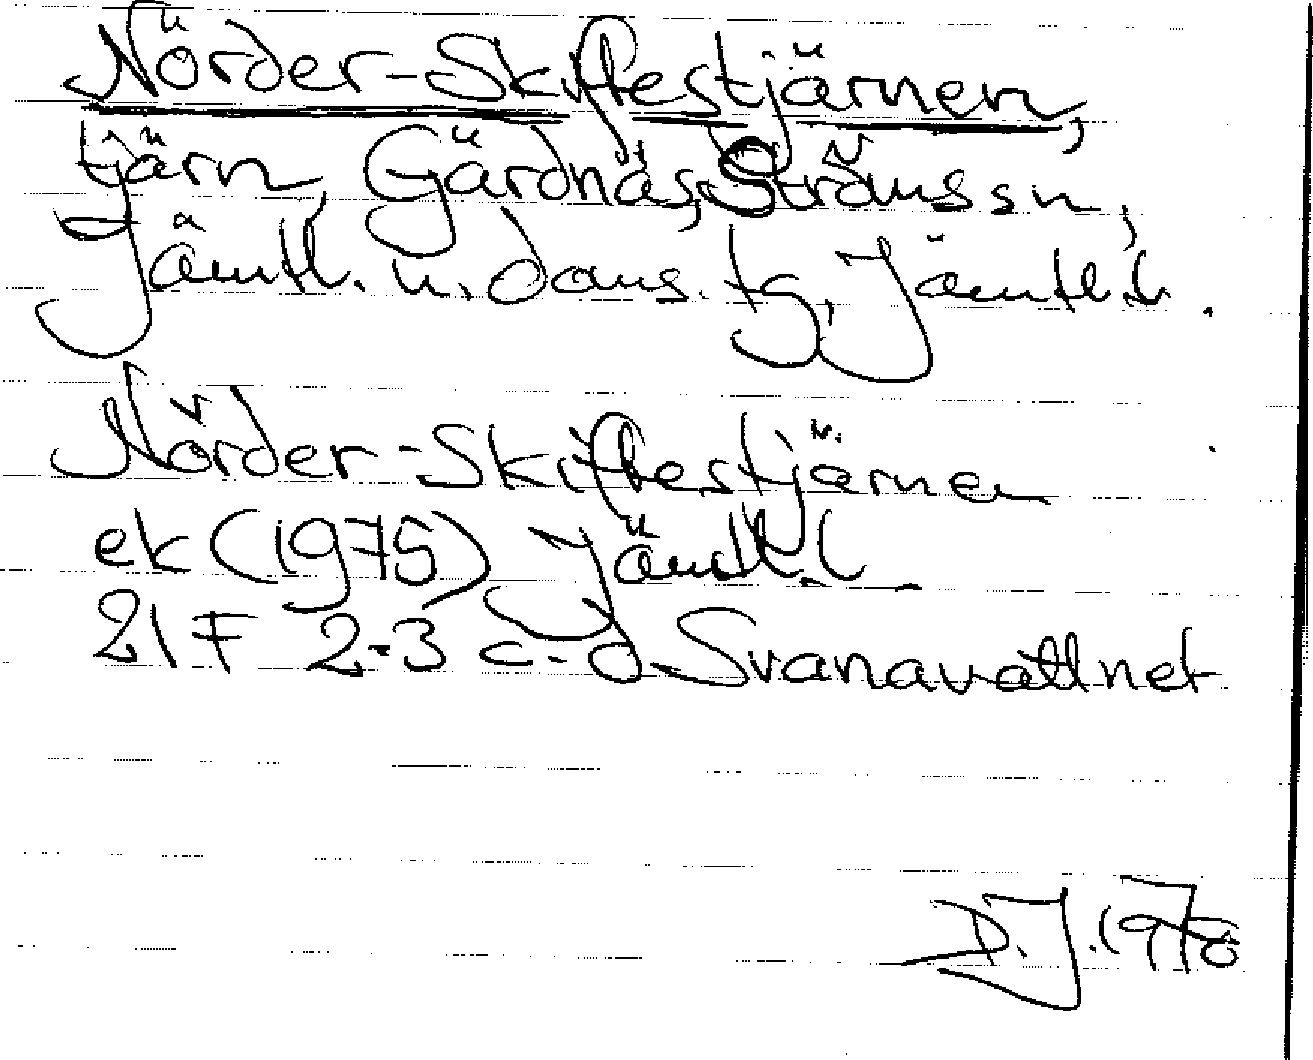 Nörder-Skiftestjärnen,
tjärn, Gärdnäs, Ströms sn,
Jämtl. n. doms. tg, Jämtl. l.
Nörder-Skiftestjärnen
ek (1975) Jämtl. l.
21 F 2-3 c-d Svanavattnet
D.J. 1978